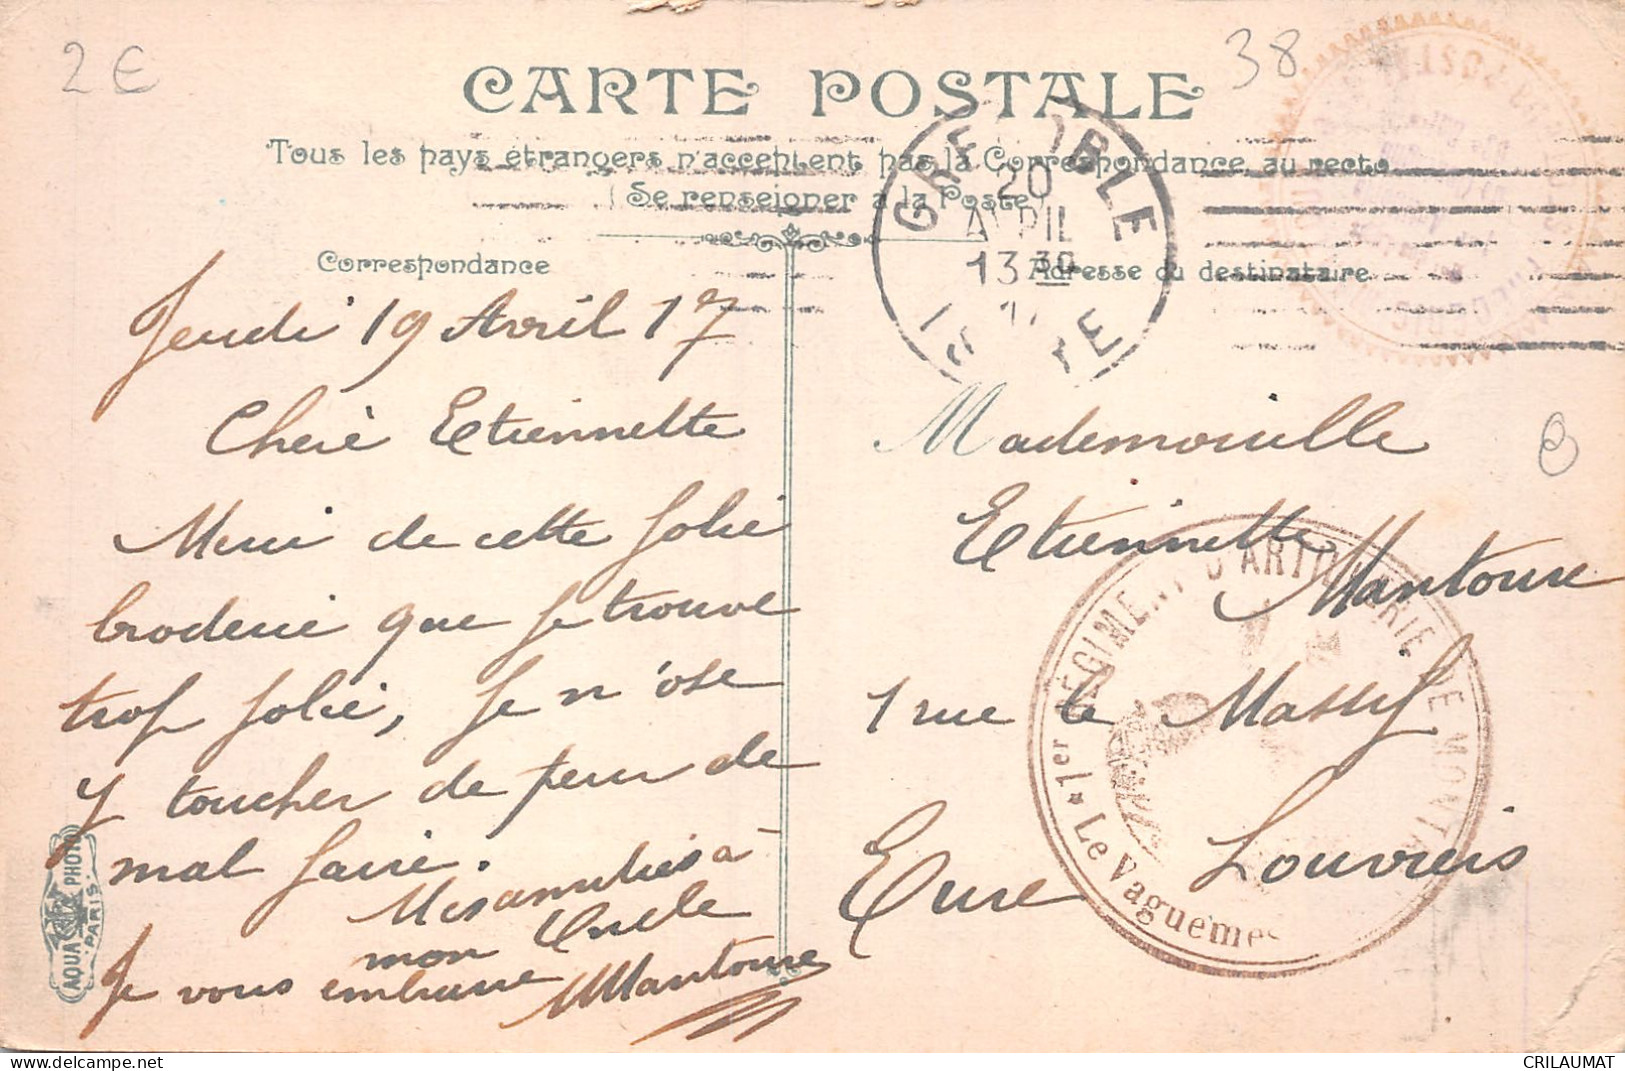 2€
38
CARTE POSTALE
Tous les pays étrangers n'acceptent pas la Correspondance au recto
(Se renseigner à la Poste)
Correspondance
Adresse du destinataire
GRENOBLE
20
AVRIL
13 30
17
ISÈRE
Jeudi 19 Avril 17
Chère Etiennette
Merci de cette jolie
broderie que je trouve
trop jolie, je n'ose
y toucher de peur de
mal faire.
Mes amitiés à
mon Oncle
Je vous embrasse
Mantoue
Mademoiselle
Etiennette Mantoue
1 rue le Massif
Louviers
Eure
1er RÉGIMENT D'ARTILLERIE DE MONTA
Le Vaguemes
AQUA PHOTO
PARIS.
CRILAUMAT